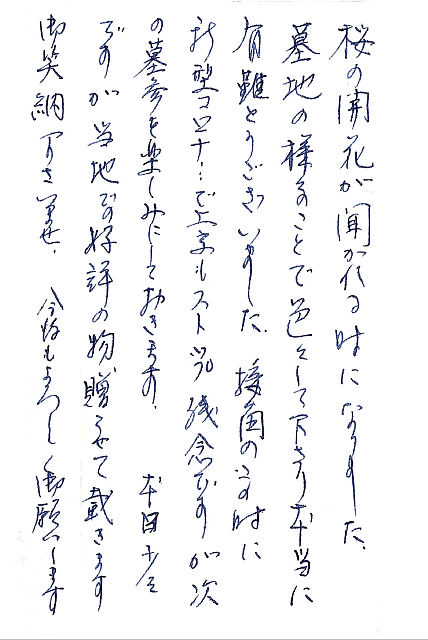 桜の開花が聞かれる時になりました。
墓地の様なことで色々して下さり本当に
有難とうございました。 の 時に
新型コロナ…で上京もストップ残念ですが次
の墓参を楽しみにして きます。 本日少々
ですが当地での好評の物贈らせて戴きます
御笑納下さいませ。 今後もよろしく御願いします